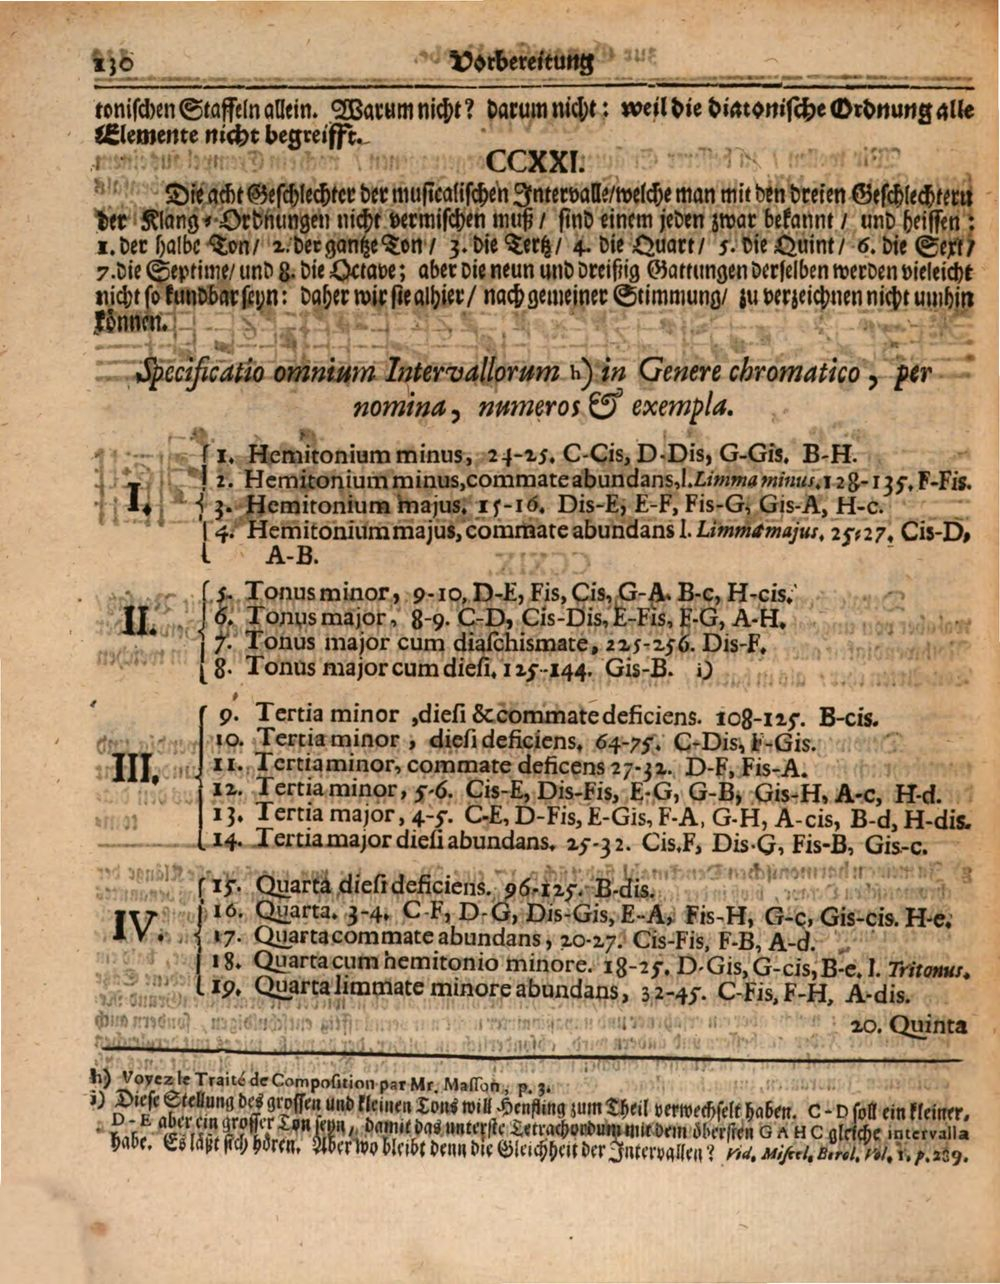 130 Vorbereitung
tonischen Staffeln allein. Warum nicht? darum nicht: weil die diatonische Ordnung alle
Elemente nicht begreifft.
CCXXI.
Die acht Geschlechter der musicalischen Intervalle/welche man mit den dreien Geschlechtern
der Klang-Ordnungen nicht vermischen muß / sind einem jeden zwar bekannt / und heissen:
1. der halbe Ton/ 2. der gantze Ton / 3. die Tertz/ 4. die Quart/ 5. die Quint/ 6. die Sext/
7. die Septime/ und 8. die Octave; aber die neun und dreißig Gattungen derselben werden vieleicht
nicht so kundbar seyn: daher wir sie alhier / nach gemeiner Stimmung/ zu verzeichnen nicht umhin
können.
Specificatio omnium Intervallorum h) in Genere chromatico, per
nomina, numeros & exempla.
I.
1. Hemitonium minus, 24-25. C-Cis, D-Dis, G-Gis. B-H.
2. Hemitonium minus, commate abundans, l. Limma minus. 128-135. F-Fis.
3. Hemitonium majus. 15-16. Dis-E, E-F, Fis-G, Gis-A, H-c.
4. Hemitonium majus, commate abundans l. Limma majus. 25-27. Cis-D,
A-B.
II.
5. Tonus minor, 9-10, D-E, Fis, Cis, G-A. B-c, H-cis.
6. Tonus major, 8-9. C-D, Cis-Dis, E-Fis, F-G, A-H.
7. Tonus major cum diaschismate, 225-256. Dis-F.
8. Tonus major cum diesi. 125-144. Gis-B. i)
III.
9. Tertia minor, diesi & commate deficiens. 108-125. B-cis.
10. Tertia minor, diesi deficiens. 64-75. C-Dis, F-Gis.
11. Tertia minor, commate deficens 27-32. D-F, Fis-A.
12. Tertia minor, 5-6. Cis-E, Dis-Fis, E-G, G-B, Gis-H, A-c, H-d.
13. Tertia major, 4-5. C-E, D-Fis, E-Gis, F-A, G-H, A-cis, B-d, H-dis.
14. Tertia major diesi abundans. 25-32. Cis.F, Dis-G, Fis-B, Gis-c.
IV.
15. Quarta diesi deficiens. 96-125. B-dis.
16. Quarta. 3-4. C-F, D-G, Dis-Gis, E-A, Fis-H, G-c, Gis-cis. H-e.
17. Quarta commate abundans, 20-27. Cis-Fis, F-B, A-d.
18. Quarta cum hemitonio minore. 18-25. D-Gis, G-cis, B-e. l. Tritonus.
19. Quarta limmate minore abundans, 32-45. C-Fis, F-H, A-dis.
20. Quinta
h) Voyez le Traité de Composition par Mr. Masson, p. 3.
i) Diese Stellung des grossen und kleinen Tons will Henfling zum Theil verwechselt haben. C-D soll ein kleiner,
D-E aber ein grosser Ton seyn, damit das unterste Tetrachordum mit dem öbersten G A H C gleiche intervalla
habe. Es läßt sich hören. Aber wo bleibt denn die Gleichheit der Intervallen? Vid. Miscel. Berol. Vol. 1. p. 289.